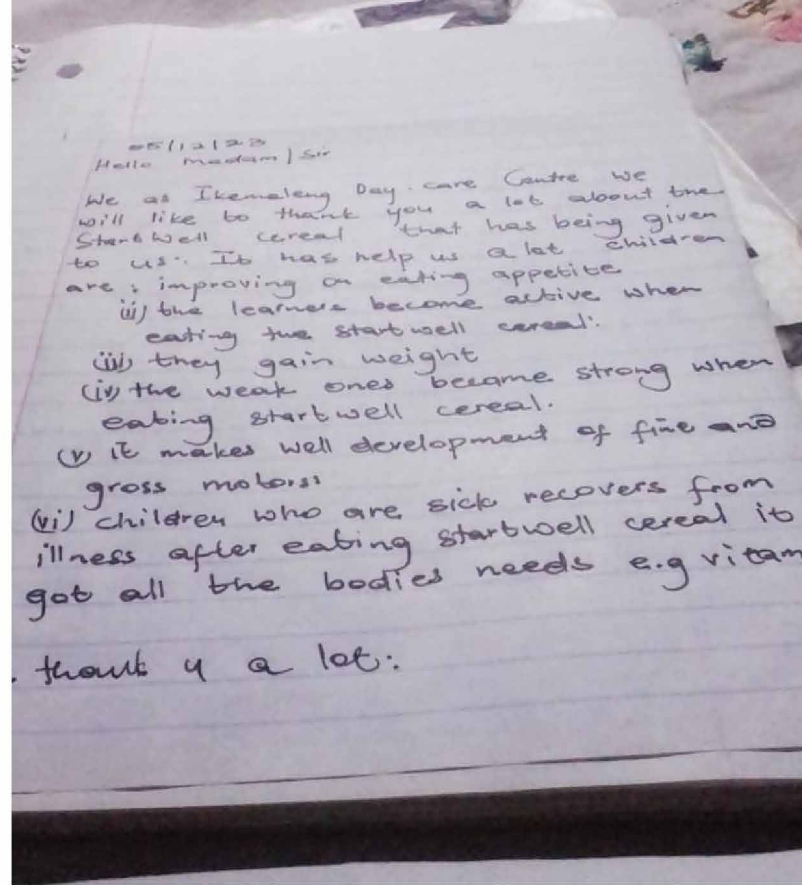 05/12/23
Hello Madam/Sir
We as Ikemeleng Day.care Centre we
will like to thank you a lot about the
Start Well cereal that has being given
to us. It has help us a lot children
are: improving on eating appetite
(ii) the learners become active when
eating the start well cereal:
(iii) they gain weight
(iv) the weak ones became strong when
eating start well cereal.
(v) it makes well development of fine and
gross motors:
(vi) children who are sick recovers from
illness after eating startwell cereal it
got all the bodies needs e.g vitam
. thank u a lot: